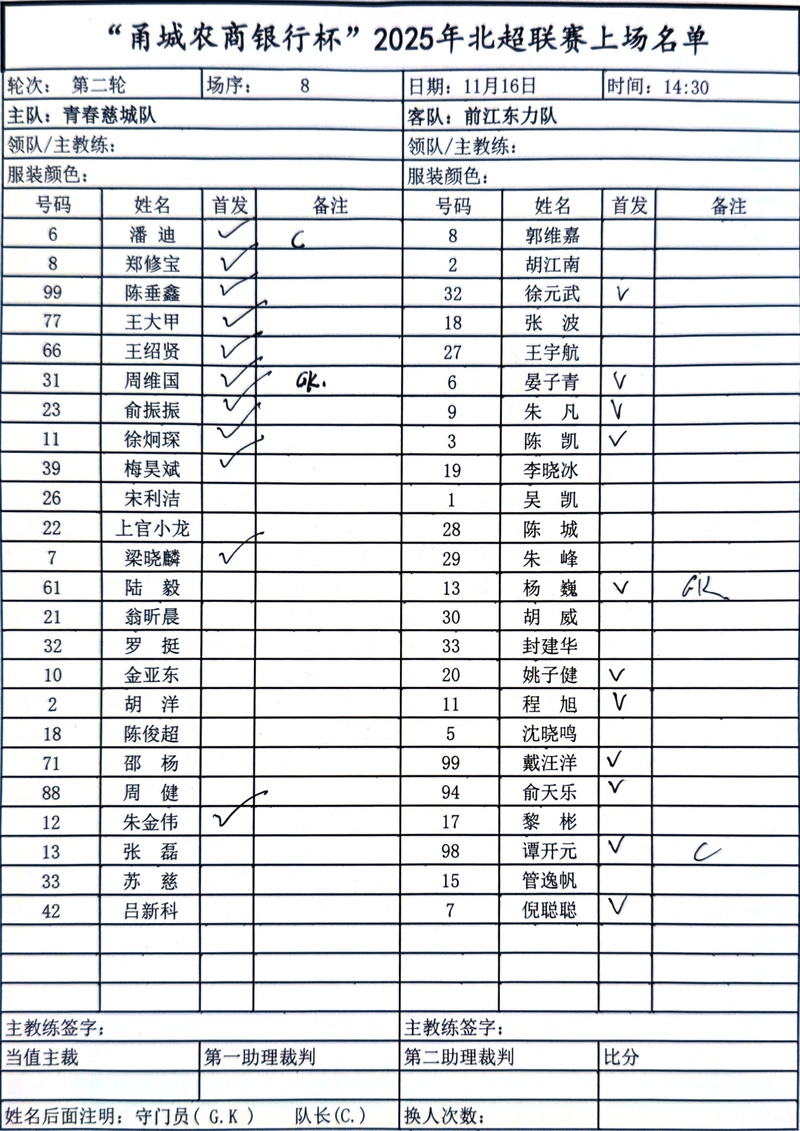 “甬城农商银行杯”2025年北超联赛上场名单
轮次： 第二轮 场序： 8 日期：11月16日 时间：14:30
主队：青春慈城队 客队：前江东力队
领队/主教练： 领队/主教练：
服装颜色： 服装颜色：
号码 姓名 首发 备注 号码 姓名 首发 备注
6 潘 迪 ✓ C 8 郭维嘉
8 郑修宝 ✓ 2 胡江南
99 陈垂鑫 ✓ 32 徐元武 ✓
77 王大甲 ✓ 18 张 波
66 王绍贤 ✓ 27 王宇航
31 周维国 ✓ GK. 6 晏子青 ✓
23 俞振振 ✓ 9 朱 凡 ✓
11 徐炯琛 ✓ 3 陈 凯 ✓
39 梅昊斌 ✓ 19 李晓冰
26 宋利洁 1 吴 凯
22 上官小龙 28 陈 城
7 梁晓麟 ✓ 29 朱 峰
61 陆 毅 13 杨 巍 ✓ GK
21 翁昕晨 30 胡 威
32 罗 挺 33 封建华
10 金亚东 20 姚子健 ✓
2 胡 洋 11 程 旭 ✓
18 陈俊超 5 沈晓鸣
71 邵 杨 99 戴汪洋 ✓
88 周 健 94 俞天乐 ✓
12 朱金伟 ✓ 17 黎 彬
13 张 磊 98 谭开元 ✓ C
33 苏 慈 15 管逸帆
42 吕新科 7 倪聪聪 ✓
主教练签字： 主教练签字：
当值主裁 第一助理裁判 第二助理裁判 比分
姓名后面注明：守门员( G.K ) 队长(C.) 换人次数：